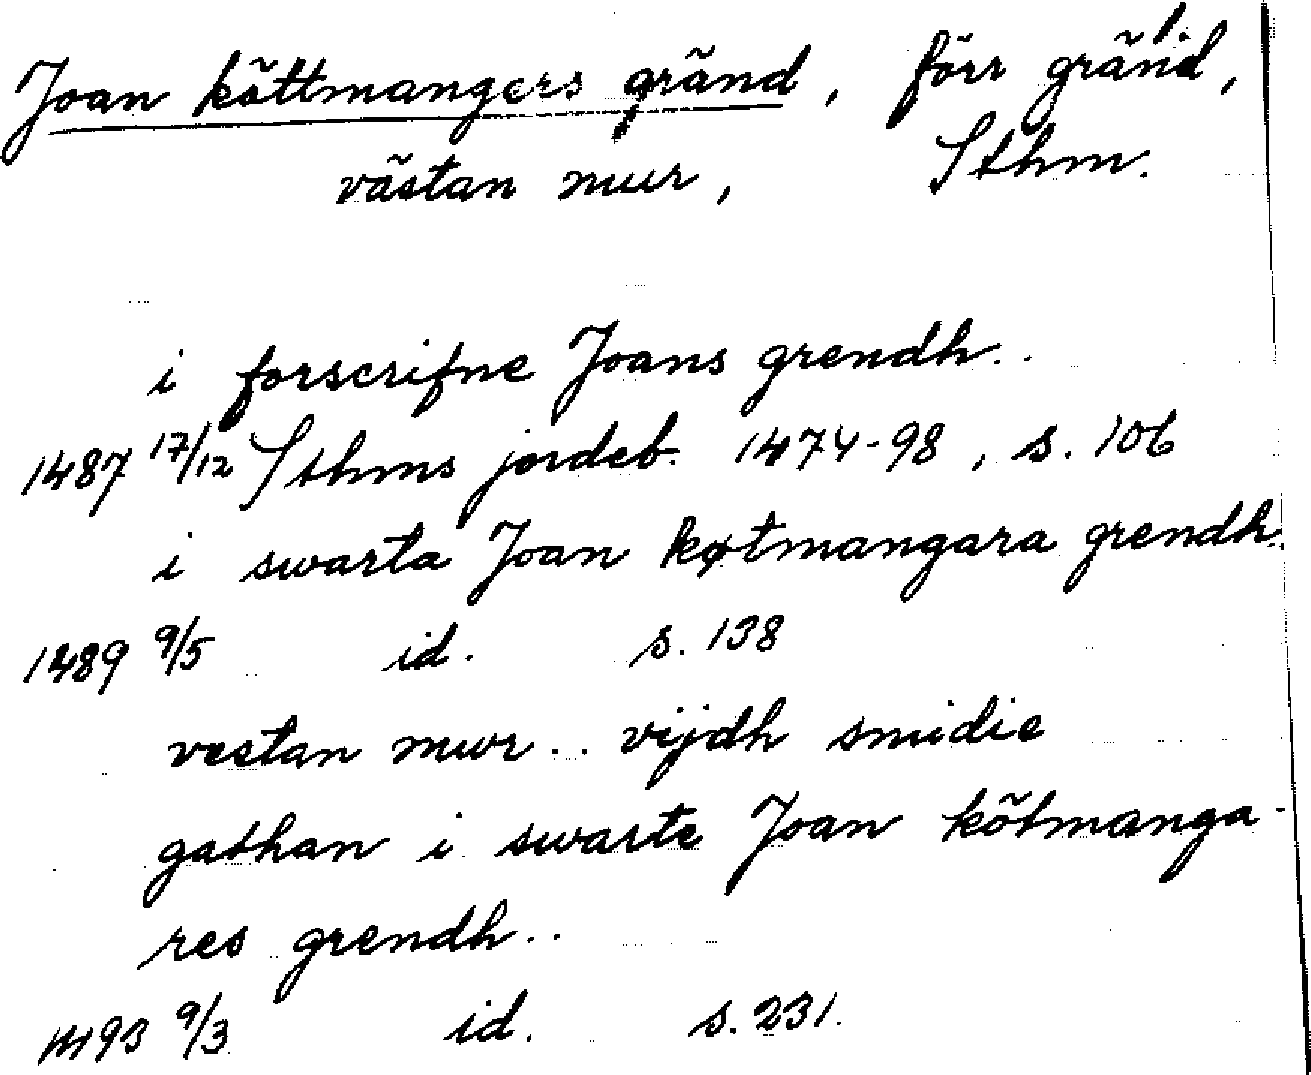 Joan köttmangers gränd, förr gränd,
västan mur, Sthm.
i forscrifne Joans grendh..
1487 17/12 Sthms jordeb. 1474-98, s. 106
i swarta Joan køtmangara grendh.
1489 9/5 id. s. 138
vestan mwr .. vijdh smidie
gathan i swarte Joan kötmanga-
res grendh..
1493 9/3 id. s. 231.